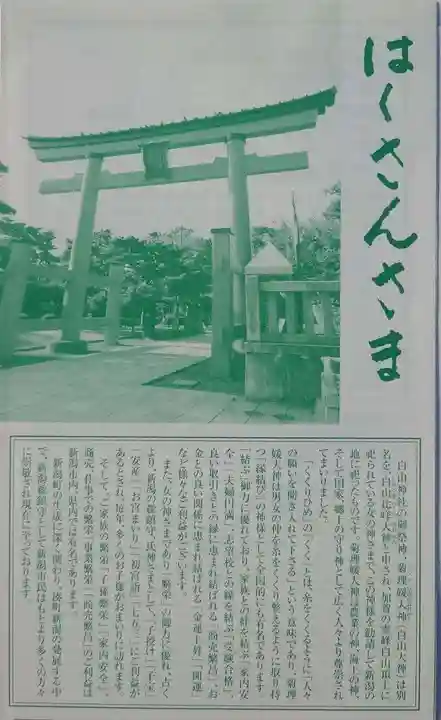 はくさんさま
白山神社の御祭神、菊理媛大神（白山大神）は別
名を、白山比咩大神と申され、加賀の霊峰白山頂上に
祀られている女の神さまで、この神様を勧請して新潟の
地に祀ったものです。菊理媛大神は農業の神、海上の神、
そして国家、郷土の守り神として広く人々より尊崇され
てまいりました。
「くくりひめ」の「くく」とは、糸をくくるように「人々
の願いを聞き入れて下さる」という意味であり、菊理
媛大神は男女の仲を糸をくくり整えるように取り持
つ「縁結び」の神様として全国的にも有名であります。
「結ぶ」御力に優れており、家族との絆を結ぶ「家内安
全」「夫婦円満」、志望校との縁を結ぶ「受験合格」、
良い取引きとの縁に恵まれ結ばれる「商売繁昌」、お
金との良い関係に恵まれ結ばれる「金運上昇」「開運」
など様々なご利益がございます。
また、女の神さまであり「繁栄」の御力に優れ、古く
より、新潟の総鎮守、氏神さまとして、「子授け」「子宝」
「安産」「お宮まいり」「初宮詣」「七五三」にご利益が
あるとされ、毎年、多くのお子様がおまいりに訪れます。
そして、ご家族の繁栄「子孫繁栄」「家内安全」、
商売、仕事での繁栄「事業繁栄」「商売繁昌」のご利益は
新潟市内、県内では有名であります。
新潟の生成と深く関わり、湊町新潟の発展する中
で、新潟総鎮守として新潟市民はもとより多くの方々
に崇敬され現在に至っております。